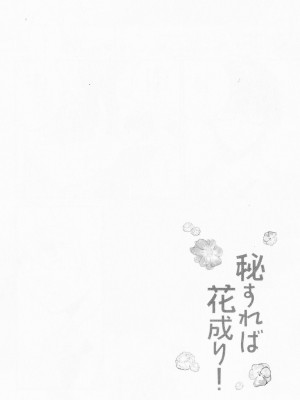 秘すれば
花成り！